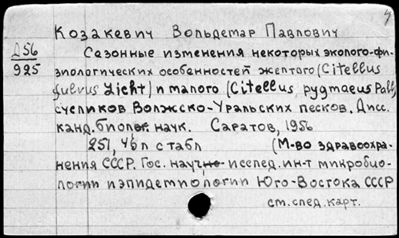 Козакевич Вольдемар Павлович
Д56
925
Сезонные изменения некоторых эколого-фи-
зиологических особенностей желтого (Citellus
fulvus Licht) и малого (Citellus pygmaeus Pall)
сусликов Волжско-Уральских песков. Дисс.
канд. биол. наук. Саратов, 1956
251, 46 л с табл (М-во здравоохра-
нения СССР. Гос. научно исслед. ин-т микробио-
логии и эпидемиологии Юго-Востока СССР
см. спед. карт.